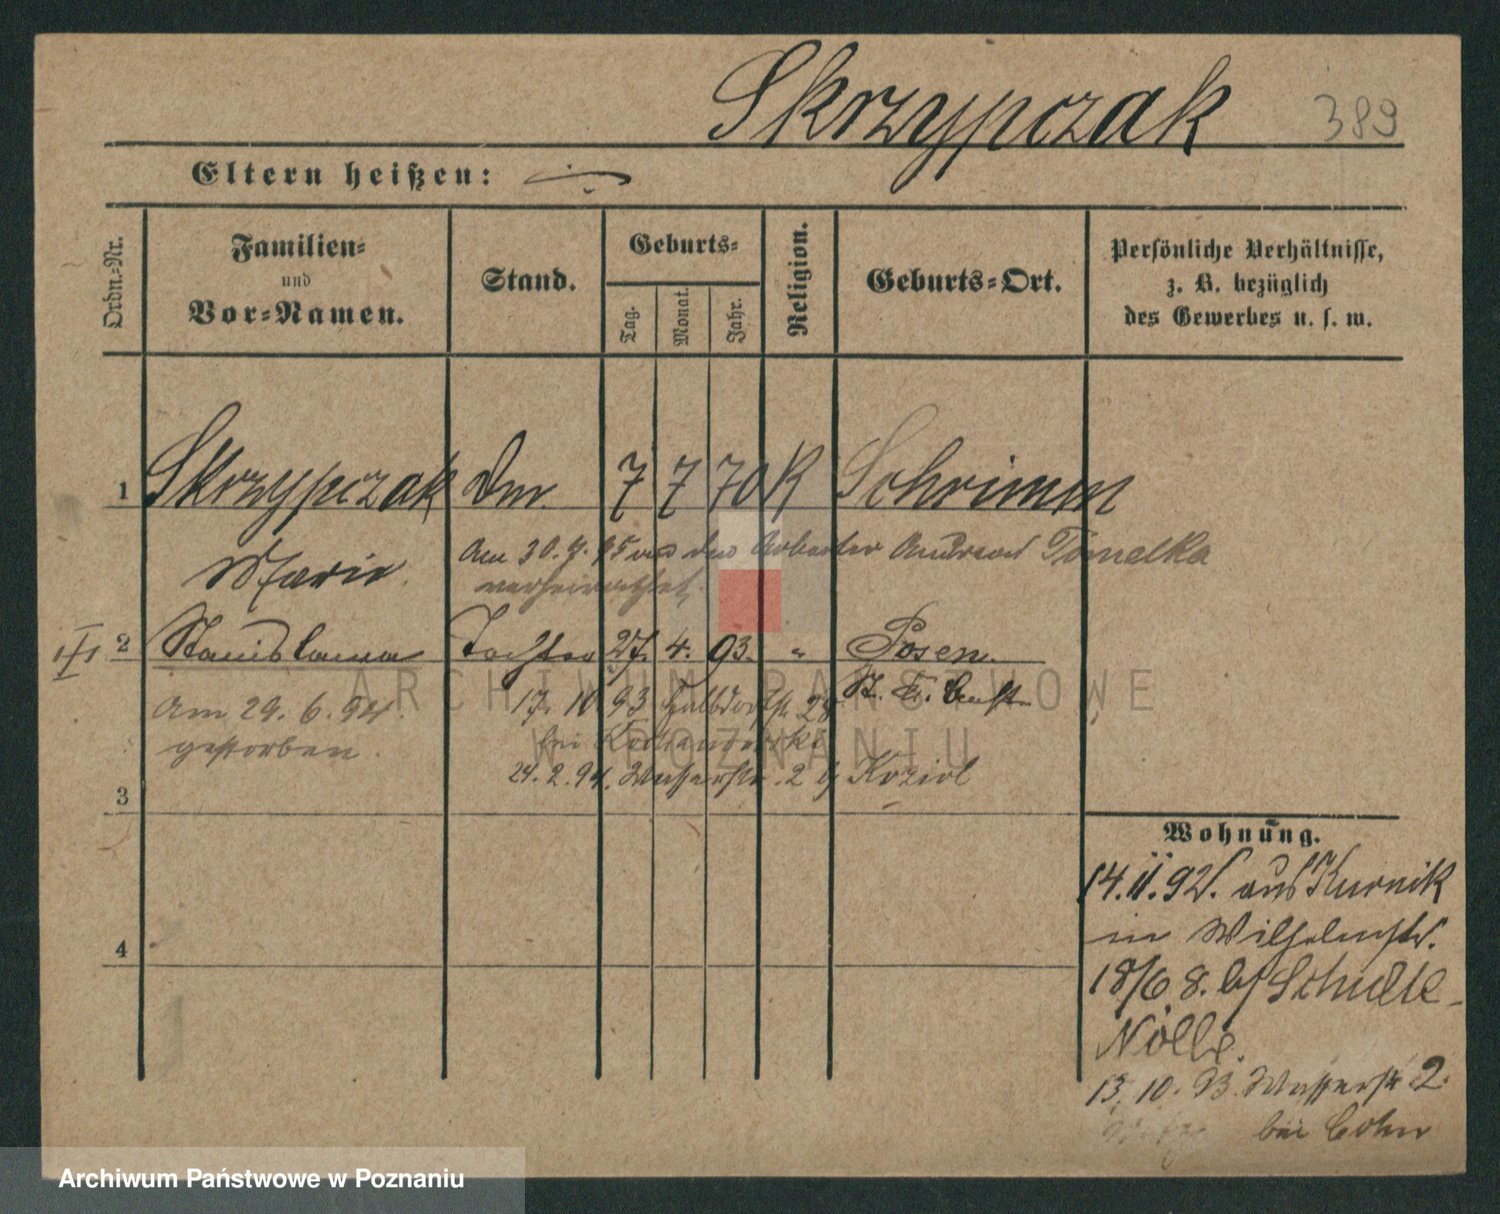 Skrzypczak 389
Eltern heißen:
Ordn.-Nr.
Familien-
und
Vor-Namen.
Stand.
Geburts-
Tag.
Monat.
Jahr.
Religion.
Geburts-Ort.
Persönliche Verhältnisse,
z. B. bezüglich
des Gewerbes u. s. w.
1 Skrzypczak Dm. 7 7 70 K Schrimm
Marie
Am 30.9.95 den Arbeiter Andreas Tomelka
verheirathet
2 Stanislawa Tochter 27. 4. 93. " Posen.
Am 29. 6. 94.
gestorben.
17. 10 93 Halbdorfstr 28
bei
24. 2. 94. Wasserstr. 2 b/ Koziol
3
4
Wohnung.
14.11.92. aus Kurnik
in Wilhelmstr.
18/6 8. b/ Schulte-
Nölle.
13. 10. 93. Wasserstr 2.
bei Cohn
ARCHIWUM PAŃSTWOWE
W POZNANIU
Archiwum Państwowe w Poznaniu